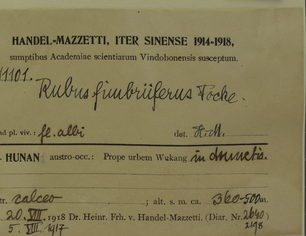 HANDEL-MAZZETTI, ITER SINENSE 1914-1918,
sumptibus Academiae scientiarum Vindobonensis susceptum.
11101.
Rubus fimbriiferus Focke.
ad pl. viv.: fl. albi det. H.M.
HUNAN austro-occ.: Prope urbem Wukang in dumetis.
str. calceo ; alt. s. m. ca. 360-500 m.
20. VIII. 1918 Dr. Heinr. Frh. v. Handel-Mazzetti. (Diar. Nr. 2640
5. VIII. 1917 2198